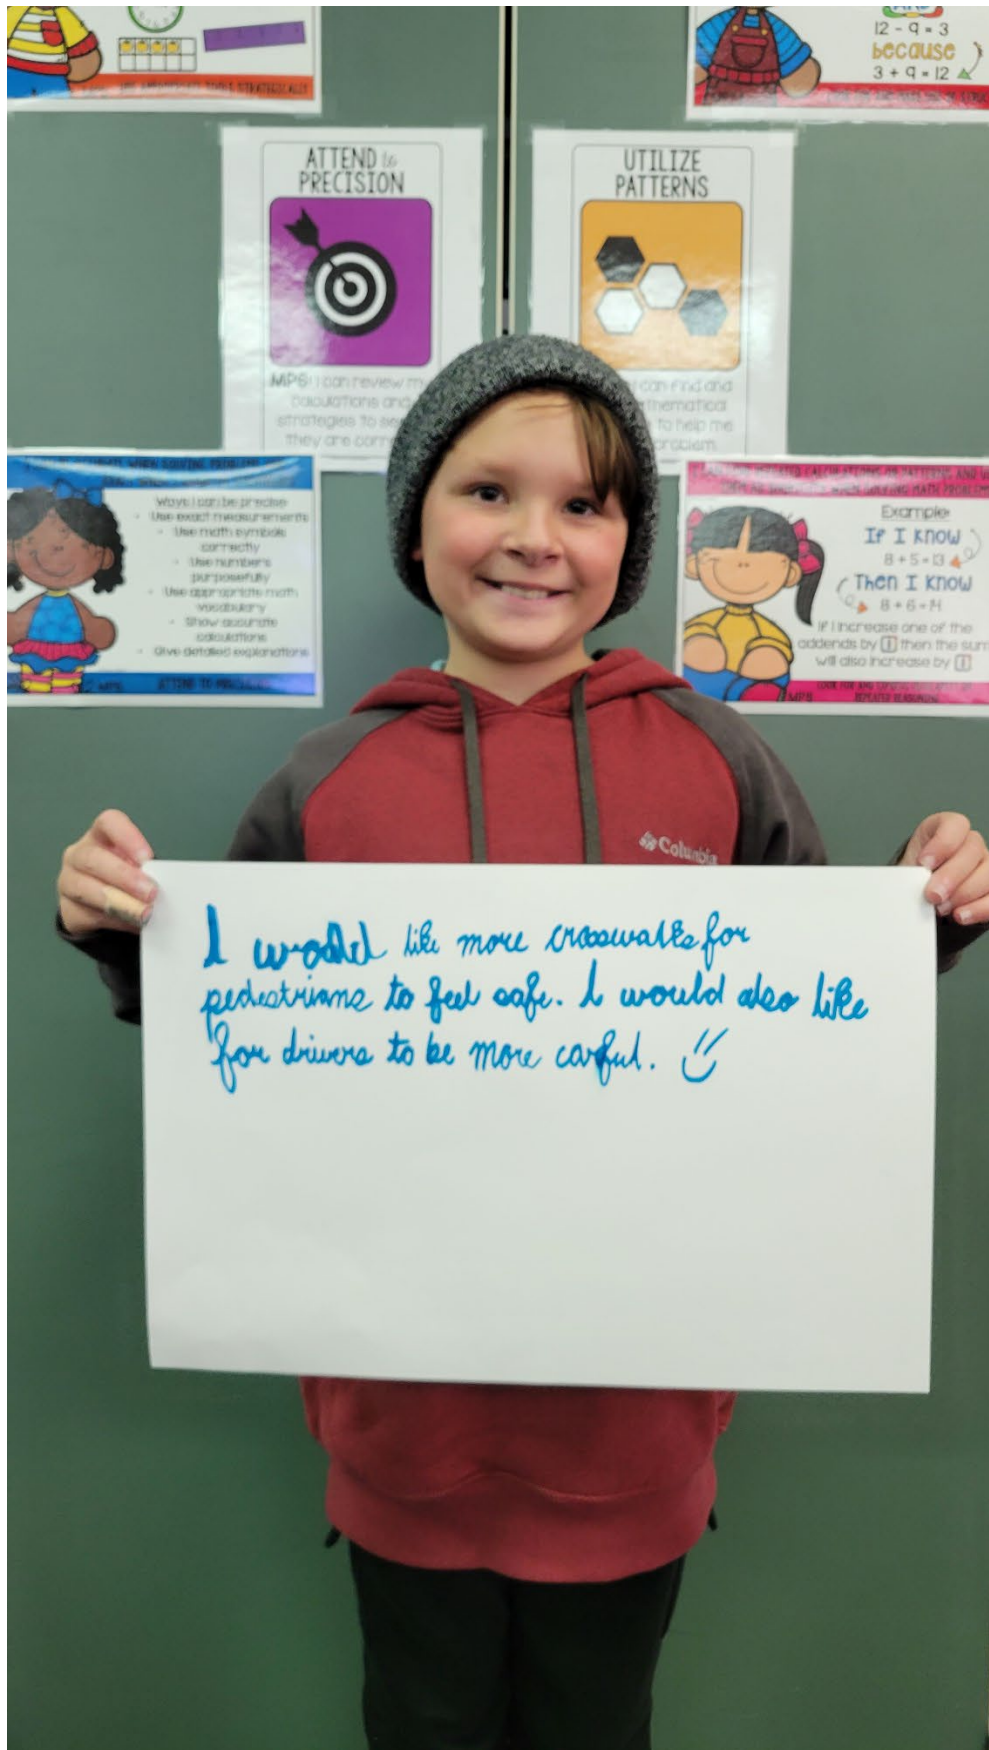 12 - 9 = 3
because
3 + 9 = 12
ATTEND to
PRECISION
UTILIZE
PATTERNS
MP6: I can review
calculations and
strategies to
they are
I can find and
to help me
problem.
Ways I can be precise
Use exact measurements
Use math symbols
correctly
Use numbers
purposefully
Use appropriate math
vocabulary
Show accurate
calculations
Give detailed explanations
ATTEND TO PRECISION
Example:
If I know
8 + 5 = 13
Then I know
8 + 6 = 14
If I increase one of the
addends by 1 then the sum
will also increase by 1
REPEATED REASONING
Columbia
I would like more crosswalks for
pedestrians to feel safe. I would also like
for drivers to be more careful.